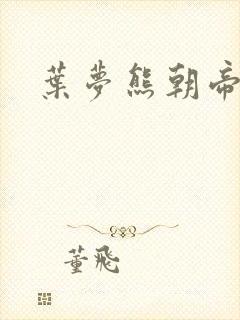 葉夢熊朝帝
董飛